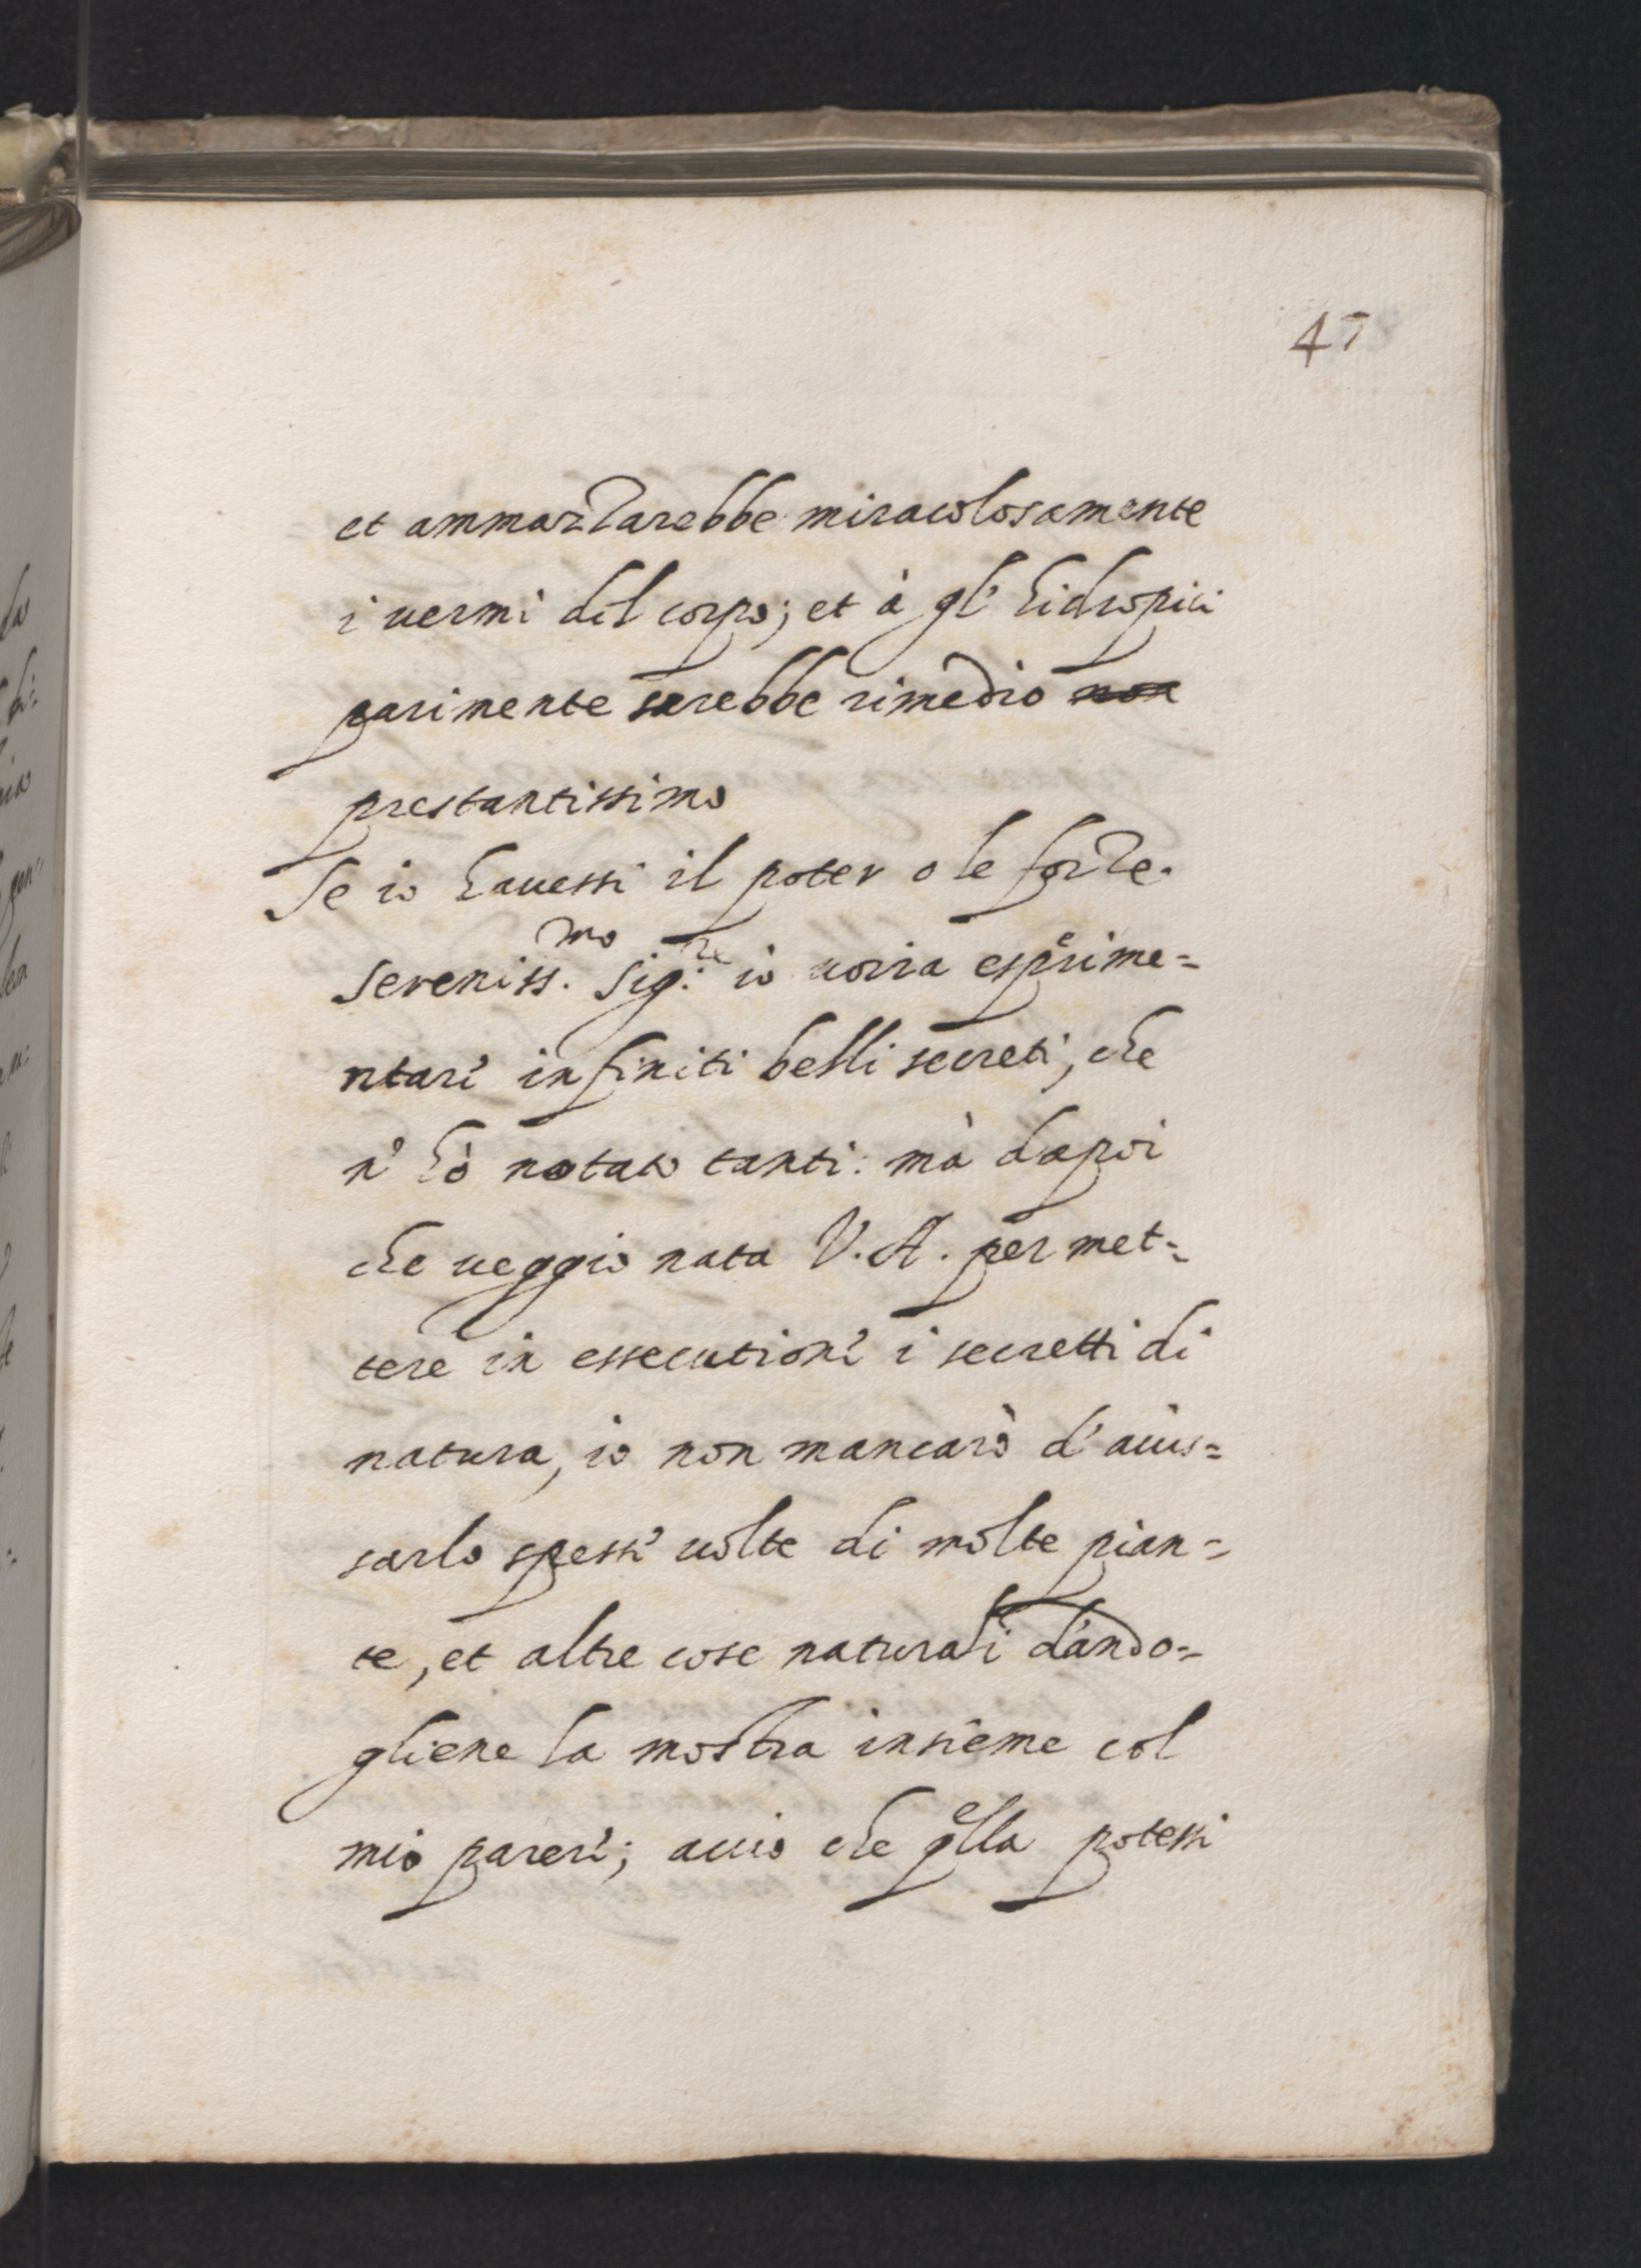 47
et ammazzarebbe miracolosamente
i uermi del corpo; et à gl' hidropici
parimente sarebbe rimedio non
prestantissimo
Se io hauessi il poter o le forze.
Sereniss.mo Sig:re io uorria esprime=
ntari infiniti belli secreti, che
n' hò notato tanti: mà dapoi
che ueggio nata V. A. per met=
tere in essecutioni i secretti di
natura, io non mancarò d' auis=
sarlo spessi uolte di molte pian=
te, et altre cose naturali dando=
gliene la mostra insieme col
mio pareri; acciò che qlla potessi